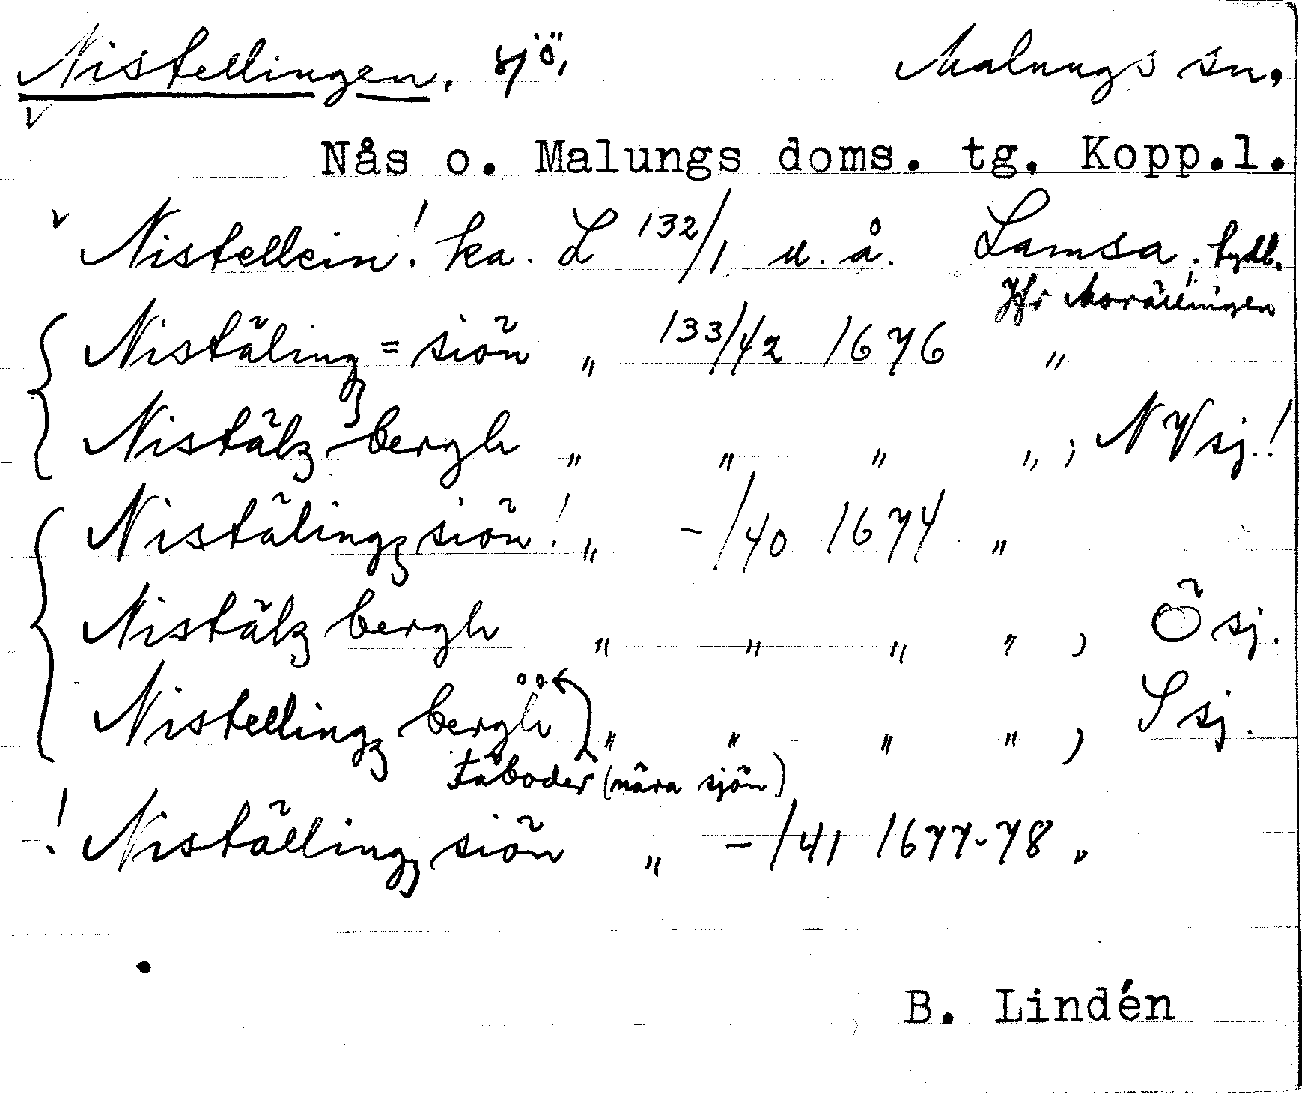 Nistellingen, sjö, Malungs sn.
Nås o. Malungs doms. tg. Kopp.l.
Nistellein! ka. L 132/1 u.å. Lamsa, tydl.
Jfr Morällingen
Nistäling=siön „ 133/42 1676 „
Nistälz bergh „ „ „ „; NV sj.!
Nistälingz siön! „ -/40 1674 „
Nistälz bergh „ „ „ „, Ö sj.
Nistellingz bergh „ „ „ „, S sj.
Fäboder (nära sjön)
! Niställingz siön „ -/41 1677-78 „
B. Lindén